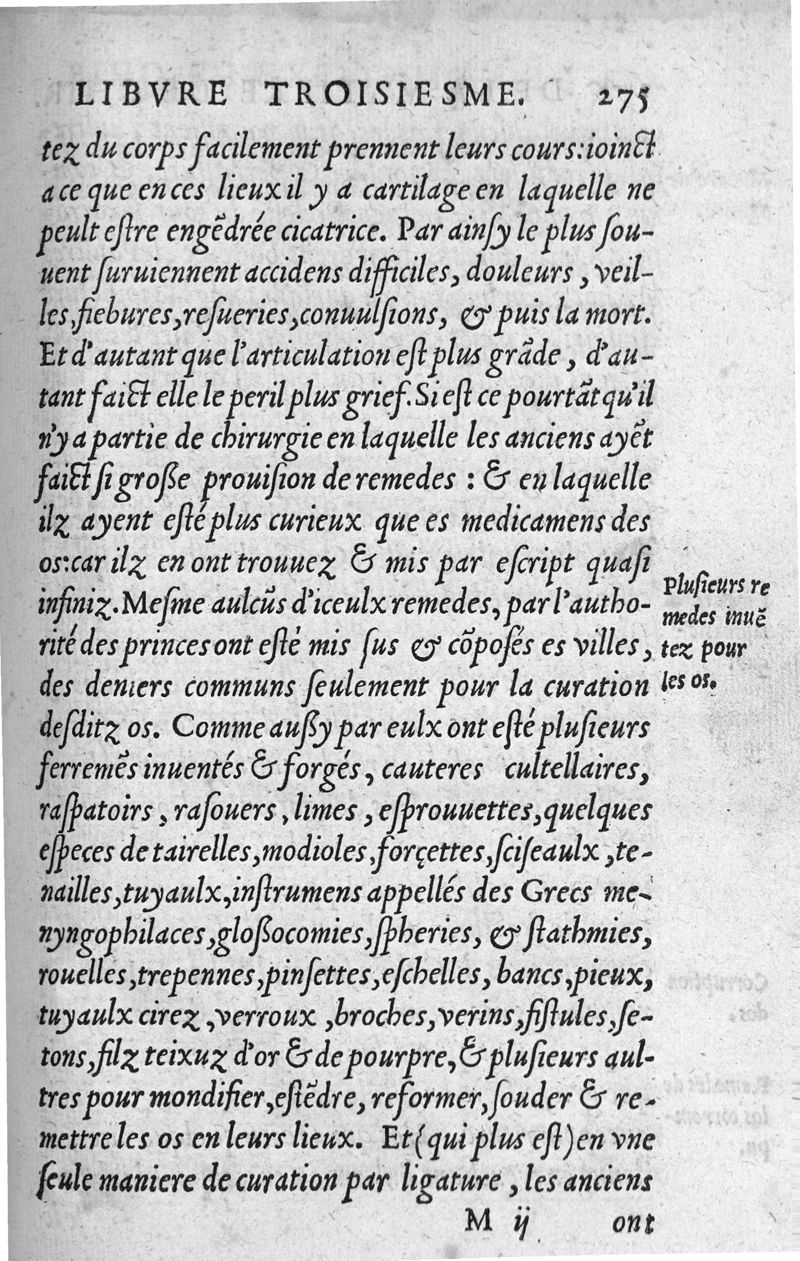 LIBVRE TROISIESME. 275
tez du corps facilement prennent leurs cours: ioinct
a ce que en ces lieux il y a cartilage en laquelle ne
peult eſtre engẽdrée cicatrice. Par ainſy le plus ſou-
uent ſuruiennent accidens difficiles, douleurs, veil-
les, fiebures, reſueries, conuulſions, & puis la mort.
Et d'autant que l'articulation eſt plus grãde, d'au-
tant faict elle le peril plus grief. Si eſt ce pourtãt qu'il
n'y a partie de chirurgie en laquelle les anciens ayẽt
faict ſi groſſe prouiſion de remedes : & en laquelle
ilz ayent eſté plus curieux que es medicamens des
os: car ilz en ont trouuez & mis par eſcript quaſi
infiniz. Meſme aulcũs d'iceulx remedes, par l'autho-
rité des princes ont eſté mis ſus & cõpoſés es villes,
des deniers communs ſeulement pour la curation
deſditz os. Comme auſſy par eulx ont eſté pluſieurs
ferremẽs inuentés & forgés, cauteres cultellaires,
raſpatoirs, raſouers, limes, eſprouuettes, quelques
eſpeces de tairelles, modioles, forçettes, ſciſeaulx, te-
nailles, tuyaulx, inſtrumens appellés des Grecs me-
nyngophilaces, gloſſocomies, ſpheries, & ſtathmies,
rouelles, trepennes, pinſettes, eſchelles, bancs, pieux,
tuyaulx cirez, verroux, broches, verins, fiſtules, ſe-
tons, filz teixuz d'or & de pourpre, & pluſieurs aul-
tres pour mondifier, eſtẽdre, reformer, ſouder & re-
mettre les os en leurs lieux. Et (qui plus eſt) en vne
ſeule maniere de curation par ligature, les anciens
M ij ont
Pluſieurs re
medes inuẽ
tez pour
les os.